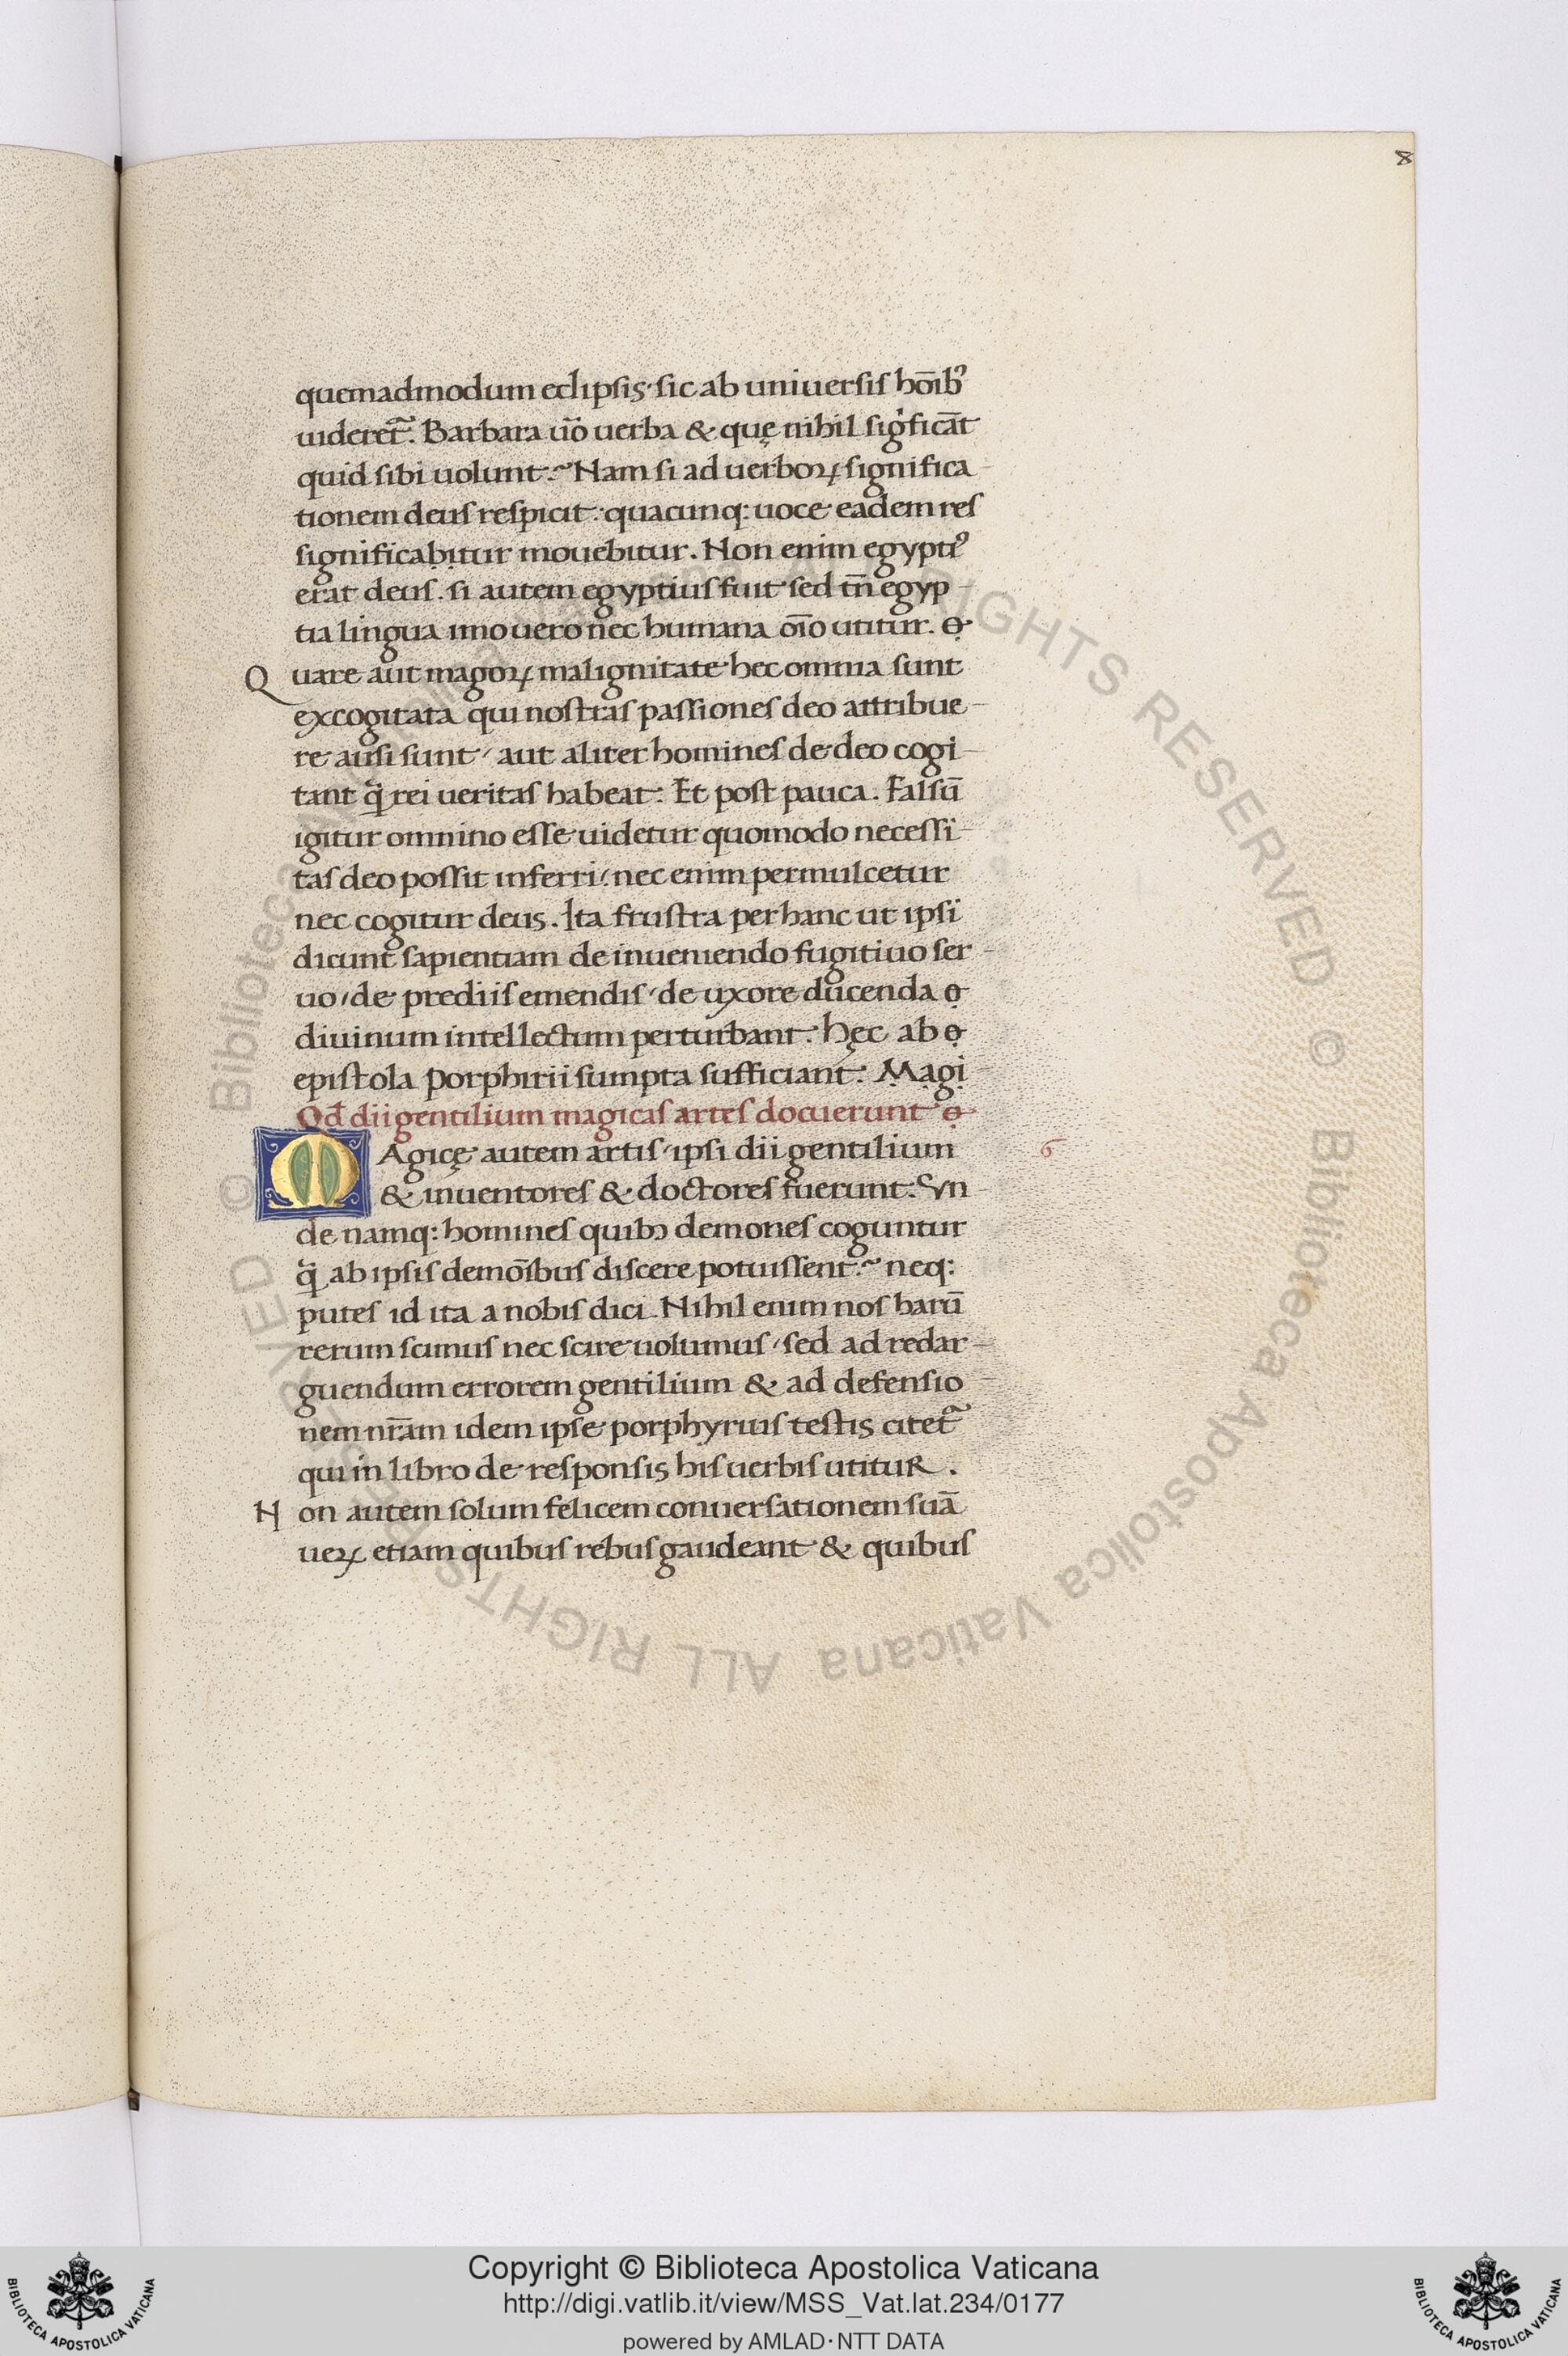 8
quemadmodum eclipsis· sic ab uniuersis ho᷒ib᷒
uideret᷈. Barbara uo᷒ uerba & quę nihil sigficāt
quid sibi uolunt:~ Nam si ad uerboꝝ significa-
tionem deus respicit: quacunq: uoce eadem res
significabitur mouebitur. Non enim egypti᷒
erat deus. si autem egyptius fuit sed tn̄ egyp-
tia lingua imo uero nec humana oīo utitur. ɵ
Quare aut magoꝝ malignitate hec omnia sunt
excogitata qui nostras passiones deo attribue-
re ausi sunt / aut aliter homines de deo cogi-
tant q̄ rei ueritas habeat: Et post pauca. Falsū
igitur omnino esse uidetur quomodo necessi-
tas deo possit inferri / nec enim permulcetur
nec cogitur deus. Ita frustra per hanc ut ipsi
dicunt sapientiam de inueniendo fugitiuo ser-
uo / de prediis emendis / de uxore ducenda ɵ
diuinum intellectum perturbant: hęc ab ɵ
epistola Porphirii sumpta sufficiant: Magi
Qd̄ dii gentilium magicas artes docuerunt ɵ
MAgicę autem artis / ipsi dii gentilium 6
& inuentores & doctores fuerunt: Vn-
de namq: homines quibɔ demones coguntur
q̄ ab ipsis demōibus discere potuissent:~ neq:
putes id ita a nobis dici. Nihil enim nos harū
rerum scimus nec scire uolumus / sed ad redar-
guendum errorem gentilium & ad defensio-
nem nr̄am idem ipse porphyrius testis citet᷈
qui in libro de responsis his uerbis utituR.
Non autem solum felicem conuersationem suā
ueꝝ etiam quibus rebus gaudeant & quibus
© Biblioteca Apostolica Vaticana ALL RIGHTS RESERVED
Copyright © Biblioteca Apostolica Vaticana
http://digi.vatlib.it/view/MSS_Vat.lat.234/0177
powered by AMLAD·NTT DATA
BIBLIOTECA APOSTOLICA VATICANA
BIBLIOTECA APOSTOLICA VATICANA